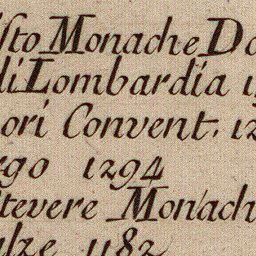 isto Monache Do
di Lombardia 1
ori Convent. 12
rgo 1294
tevere Monach
ulze 1182